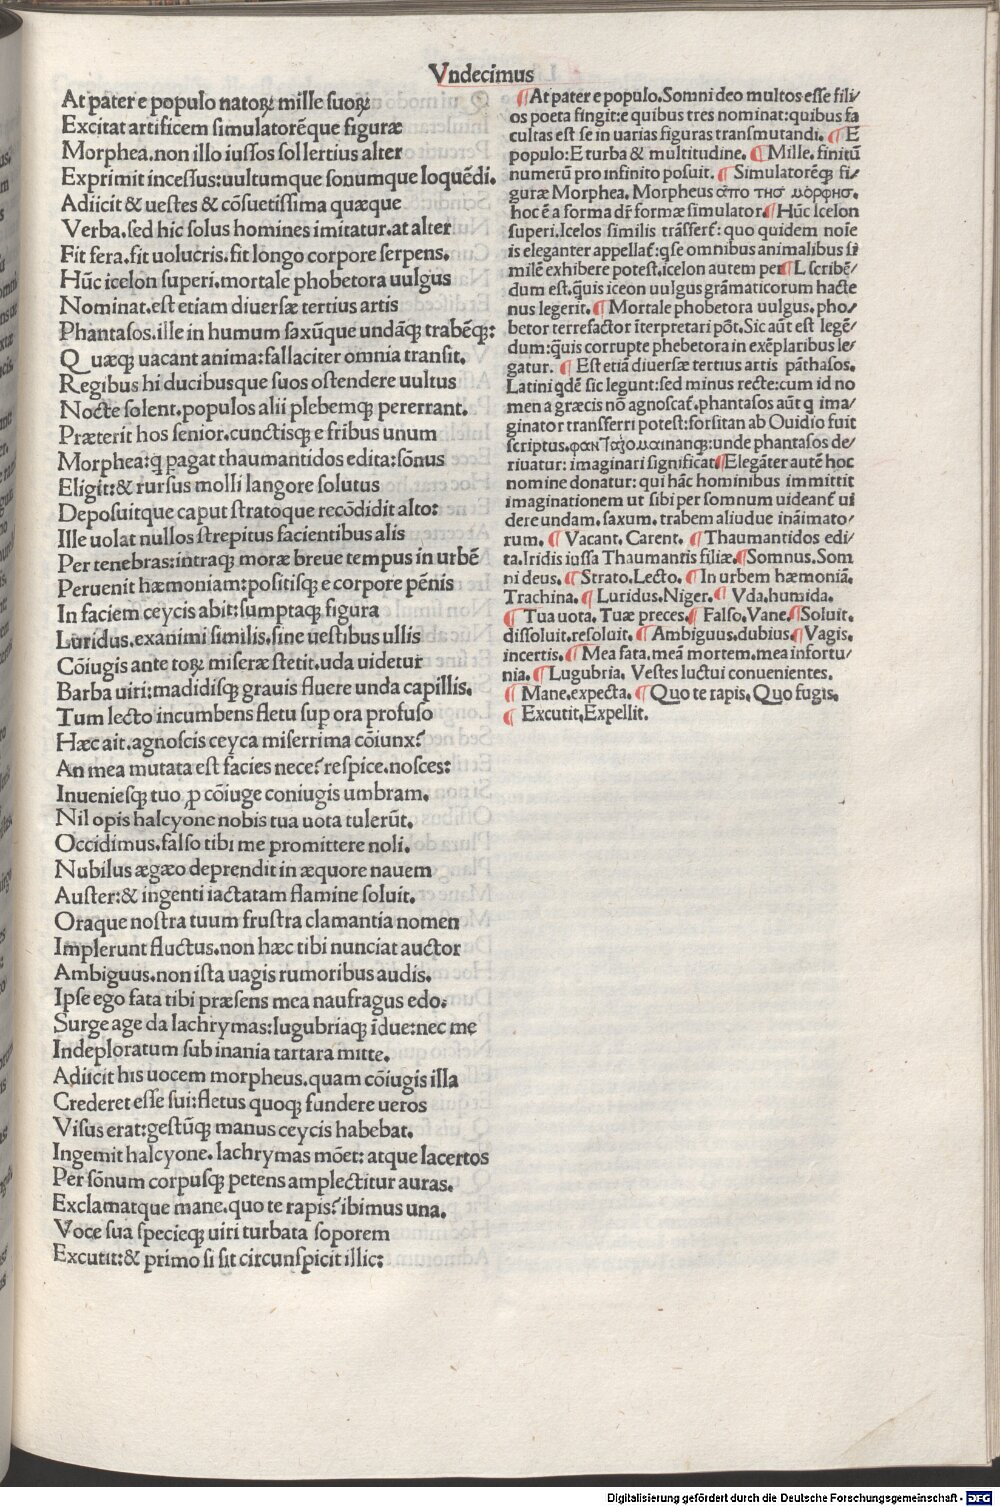 Vndecimus
At pater e populo natoꝝ mille suoꝝ
Excitat artificem simulatorēque figuræ
Morphea.non illo iussos sollertius alter
Exprimit incessus:uultumque sonumque loquēdi.
Adiicit & uestes & cōsuetissima quæque
Verba.sed hic solus homines imitatur.at alter
Fit fera.fit uolucris.fit longo corpore serpens.
Hūc icelon superi.mortale phobetora uulgus
Nominat.est etiam diuersæ tertius artis
Phantasos.ille in humum saxūque undāqꝫ trabēqꝫ:
Quæqꝫ uacant anima:fallaciter omnia transit.
Regibus hi ducibusque suos ostendere uultus
Nocte solent.populos alii plebemqꝫ pererrant.
Præterit hos senior.cunctisqꝫ e fribus unum
Morphea:q pagat thaumantidos edita:sōnus
Eligit:& rursus molli langore solutus
Deposuitque caput stratoque recōdidit alto:
Ille uolat nullos strepitus facientibus alis
Per tenebras:intraqꝫ moræ breue tempus in urbē
Peruenit hæmoniam:positisqꝫ e corpore pēnis
In faciem ceycis abit:sumptaqꝫ figura
Luridus.exanimi similis.sine uestibus ullis
Cōiugis ante toꝝ miseræ stetit.uda uidetur
Barba uiri:madidisqꝫ grauis fluere unda capillis.
Tum lecto incumbens fletu sup ora profuso
Hæc ait.agnoscis ceyca miserrima cōiunx?
An mea mutata est facies nece?respice.nosces:
Inueniesqꝫ tuo ꝓ cōiuge coniugis umbram.
Nil opis halcyone nobis tua uota tulerūt.
Occidimus.falso tibi me promittere noli.
Nubilus ægæo deprendit in æquore nauem
Auster:& ingenti iactatam flamine soluit.
Oraque nostra tuum frustra clamantia nomen
Implerunt fluctus.non hæc tibi nunciat auctor
Ambiguus.non ista uagis rumoribus audis.
Ipse ego fata tibi præsens mea naufragus edo:
Surge age da lachrymas:lugubriaqꝫ īdue:nec me
Indeploratum sub inania tartara mitte.
Adiicit his uocem morpheus.quam cōiugis illa
Crederet esse sui:fletus quoqꝫ fundere ueros
Visus erat:gestūqꝫ manus ceycis habebat.
Ingemit halcyone.lachrymas mōet: atque lacertos
Per sōnum corpusqꝫ petens amplectitur auras.
Exclamatque mane.quo te rapis?ibimus una.
Voce sua specieqꝫ uiri turbata soporem
Excutit:& primo si sit circunspicit illic:
¶At pater e populo.Somni deo multos esse fili/
os poeta fingit:e quibus tres nominat:quibus fa
cultas est se in uarias figuras transmutandi. ¶E
populo:E turba & multitudine. ¶Mille.finitū
numerū pro infinito posuit. ¶Simulatorēqꝫ fi/
guræ Morphea. Morpheus ἀπο τησ μορφησ.
hoc ē a forma dr̄ formæ simulator¶Hūc Icelon
superi.Icelos similis trāsfert̄: quo quidem noīe
is eleganter appellat̄:qſe omnibus animalibus si
milē exhibere potest.icelon autem per L scribē/
dum est.quis iceon uulgus grāmaticorum hacte
nus legerit. ¶Mortale phobetora uulgus.pho/
betor terrefactor īterpretari pōt.Sic aūt est legē/
dum:quis corrupte phebetora in exēplaribus le/
gatur. ¶Est etiā diuersæ tertius artis pāthasos.
Latini qdē sic legunt:sed minus recte:cum id no
men a græcis nō agnoscat̄.phantasos aūt q ima/
ginator transferri potest:forsitan ab Ouidio fuit
scriptus.:unde phantasos de/
riuatur: imaginari significat¶Elegāter autē hoc
nomine donatur: qui hāc hominibus immittit
imaginationem ut sibi per somnum uideant̄ ui
dere undam.saxum.trabem aliudueināimato/
rum. ¶Vacant.Carent. ¶Thaumantidos edi/
ta.Iridis iussa Thaumantis filiæ.¶Somnus.Som
ni deus.¶Strato.Lecto. ¶In urbem hæmoniā.
Trachina. ¶Luridus.Niger. ¶Vda.humida.
¶Tua uota. Tuæ preces.¶Falso.Vane.¶Soluit.
dissoluit.resoluit. ¶Ambiguus.dubius.¶Vagis.
incertis. ¶Mea fata.meā mortem.mea infortu/
nia. ¶Lugubria. Vestes luctui conuenientes.
¶Mane.expecta. ¶Quo te rapis. Quo fugis.
¶Excutit.Expellit.
Digitalisierung gefördert durch die Deutsche Forschungsgemeinschaft - DFG